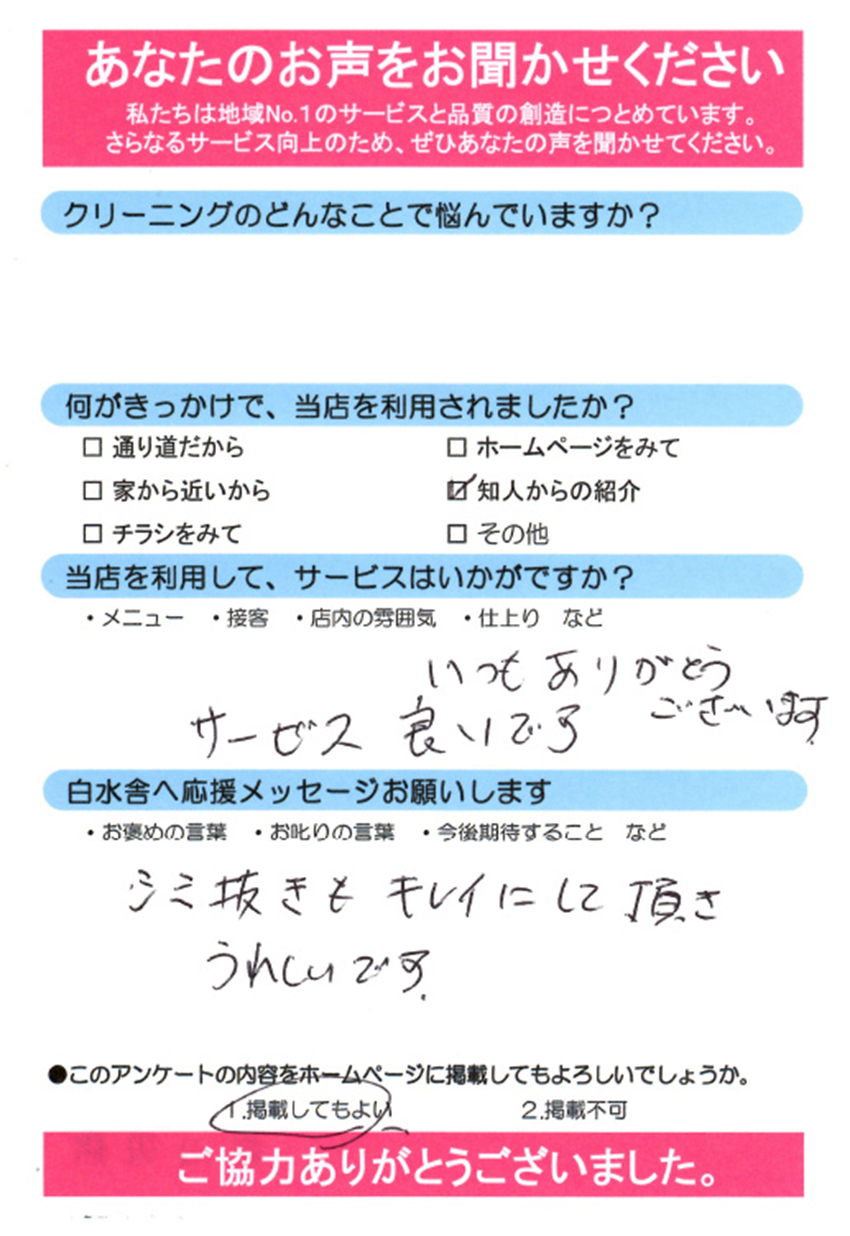 あなたのお声をお聞かせください
私たちは地域No.1のサービスと品質の創造につとめています。
さらなるサービス向上のため、ぜひあなたの声を聞かせてください。
クリーニングのどんなことで悩んでいますか？
何がきっかけで、当店を利用されましたか？
□ 通り道だから □ ホームページをみて
□ 家から近いから ☑ 知人からの紹介
□ チラシをみて □ その他
当店を利用して、サービスはいかがですか？
・メニュー ・接客 ・店内の雰囲気 ・仕上り など
いつも ありがとう
ございます
サービス 良いです
白水舎へ応援メッセージお願いします
・お褒めの言葉 ・お叱りの言葉 ・今後期待すること など
シミ抜きも キレイにして頂き
うれしいです。
●このアンケートの内容をホームページに掲載してもよろしいでしょうか。
1.掲載してもよい 2.掲載不可
ご協力ありがとうございました。